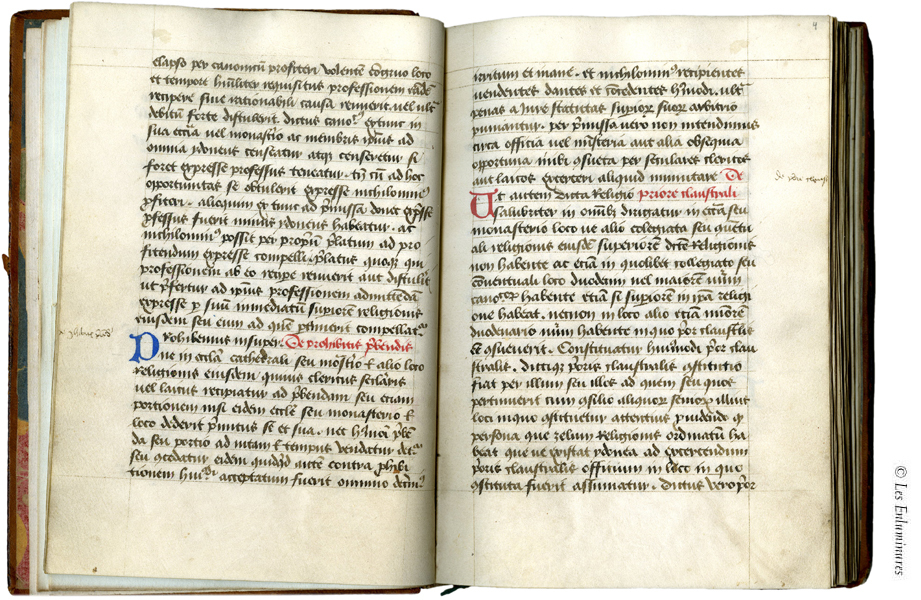 elapso per canonicū profiteri volentē cōgruo loco
et tempore hūiliter requisitus professionem eādē
recipere sine rationabili causa rennerit. vel ultᵃ
debitū forte distulerit. dictus cano.ᶜ extunc in
sua ecctīa vel monastīo ac membris ipīus ad
omnia ydoneus censeatur atqꝫ censeretur si
foret expresse professus teneatur. tn̄ cū ad hoc
oportunitas se obtulerit expresse nichilominꝰ
ꝓfiteri. alioquin ex tunc ad p̄missa donec exp̄sse
ꝓfessus fuerit minus ydoneus habeatur. ac
nichilominꝰ possit per propriū p̄latum ad pro
fitendum expresse compelli. p̄latus quoqꝫ qui
professionem ab eo recipe renuerit aut distulit
ut p̄fertur ad ipīus professionem admittendā
expresse p suū immediatū supiorē religionis
eiusdem seu eum ad quē ptinuerit compellatᵘʳ
Prohibemus insuper. De prohibitis p̄bendis
ne in ecctīa cathedrali seu mōstīo ⁊ alio loco
religionis eiusdem. quiuis clericus sectāris
vel laicus recipiatur ad p̄bendam seu etiam
portionem nisi eidem ecctē seu monasterio ⁊
loco dederit p̄mitus se et sua. nec hꝰmōi p̄bē
da seu portio ad uitam ⁊ tempus vendatur det.ᵘʳ
seu ꝯcedatur eidem quidqd autē contra ꝓhibi
tionem huiꝰᵈⁱ acceptatum fuerit omnino decnīꝰ
4
irritum et inane. et nichylominꝰ recipientes
uendentes dantes et cōcedentes hꝰmodi. ultᵃ
penas a Iure statutas supioꝝ suoꝝ arbitrio
puniantur. per p̄missa uero non intendimus
circa officia vel misteria aut alia obsequia
opportuna inibi ꝯsueta per seculares clericos
aut laicos exerceri aliquid inmutare De
Ut autem dicta Religio priore claustrali
salubriter in omībꝫ dirigatur in ecctīa seu
monasterio loco ue alio colegiata seu ꝯuētu
ali religionis eiusdē superiorē dictē Religionis
non habente ac etiā in quolibet collegiato seu
cōuentuali loco duodenū uel maiorē nūm
canoᵒꝝ habente etiā si supiorē in ip̄a religi
one habeat. necnon in loco alio etiā minorē
duodenario nūm habente in quo p̄or claustīs
eē ꝯsueuerit. Constituatur huiꝰmodi p̄or clau
stralis. dictiqꝫ p̄oris claustralis ꝯstitutio
fiat per illum seu illos ad quem seu quos
pertinuerit cum ꝯsilio aliquoꝝ senioꝝ illius
loci in quo ꝯstituetur attentius ꝓuidendo qꝫ
persona que zelum Religionis ordinatū ha
beat que ue existat ydonea ad exercendum
p̄oris claustralis officium in loco in quo
ꝯstituta fuerit assumatur. Dictus vero p̄or
© Les Enluminures